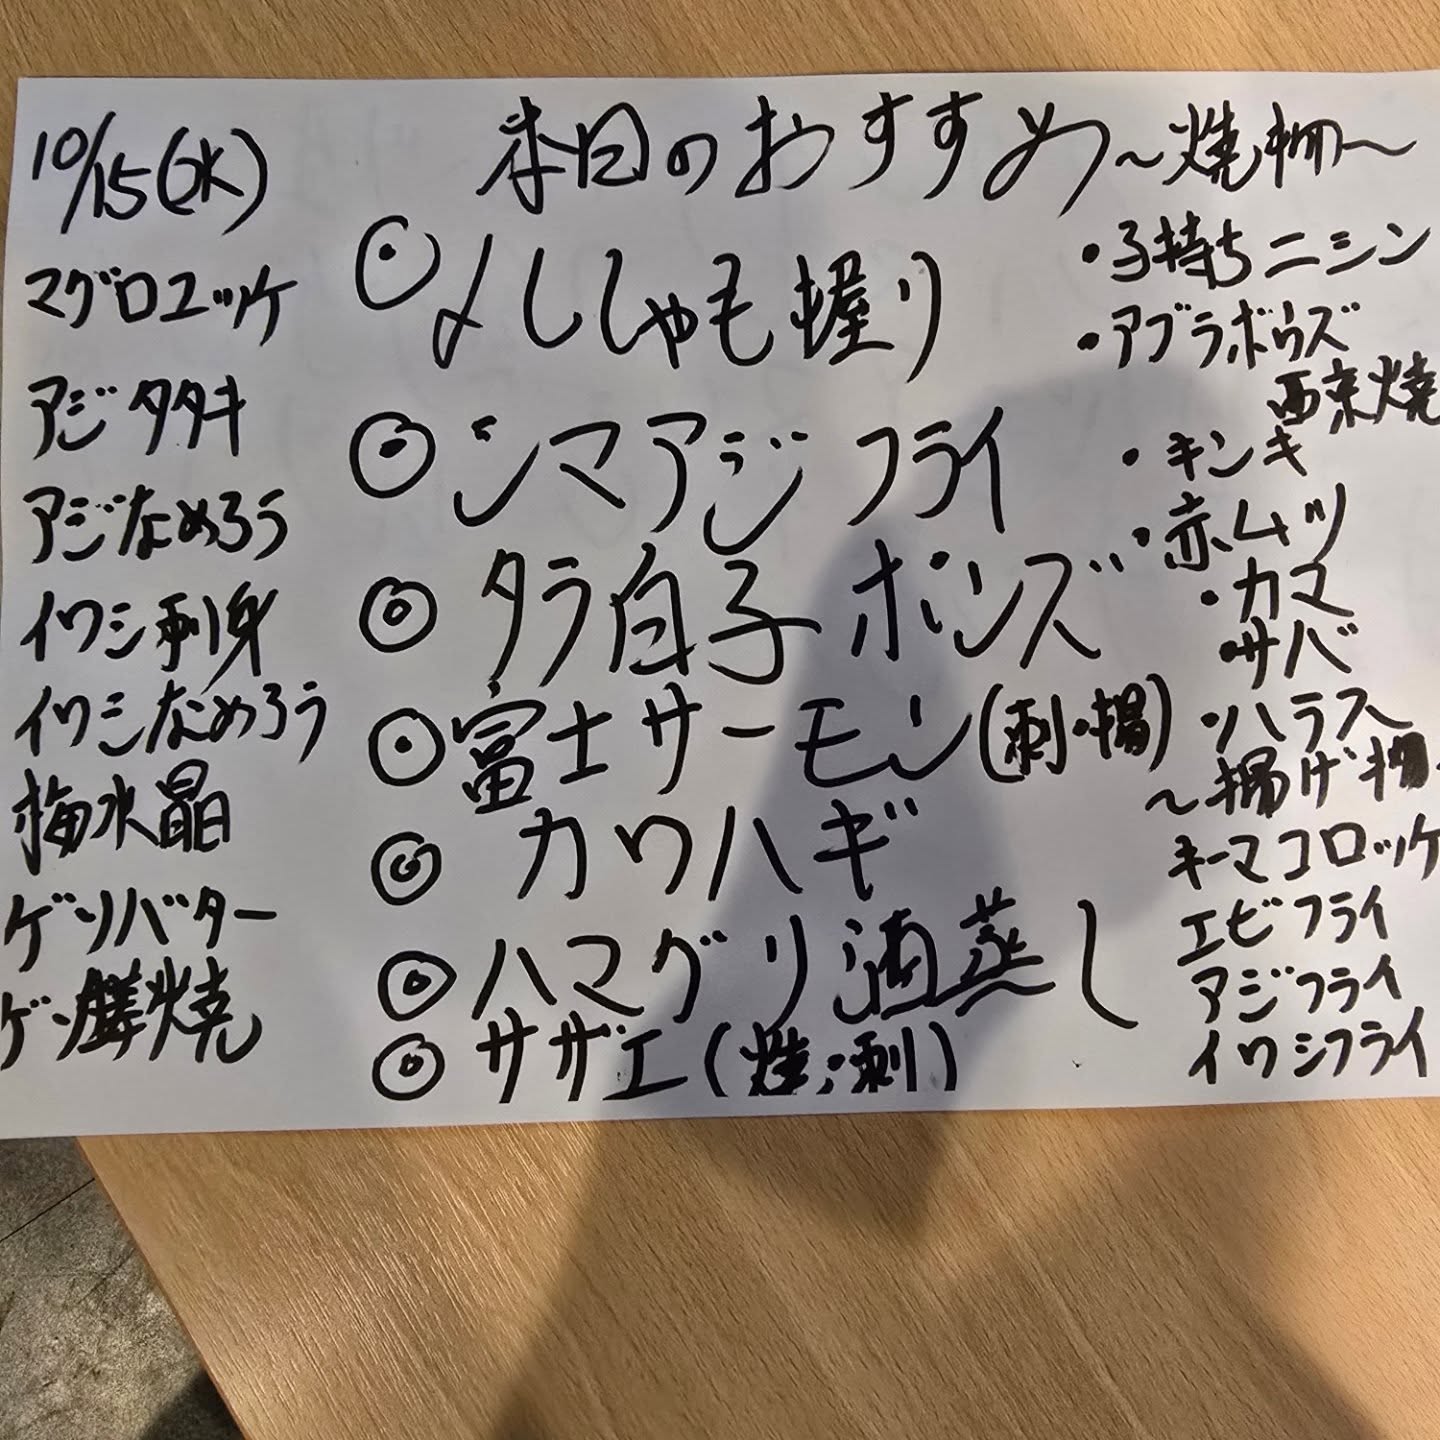 10/15(水)
本日のおすすめ
マグロユッケ
アジタタキ
アジなめろう
イワシ刺身
イワシなめろう
梅水晶
ゲソバター
ゲソ
焼
◎
ししゃも握り
◎シマアジフライ
◎タラ白子ポンズ
◎富士サーモン(刺・揚)
◎カワハギ
◎ハマグリ酒蒸し
◎サザエ(焼・刺)
～焼物～
・子持ちニシン
・アブラボウズ
西京焼
・キンキ
・赤ムツ
・カマ
・サバ
・ハラス
～揚げ物
キーマコロッケ
エビフライ
アジフライ
イワシフライ